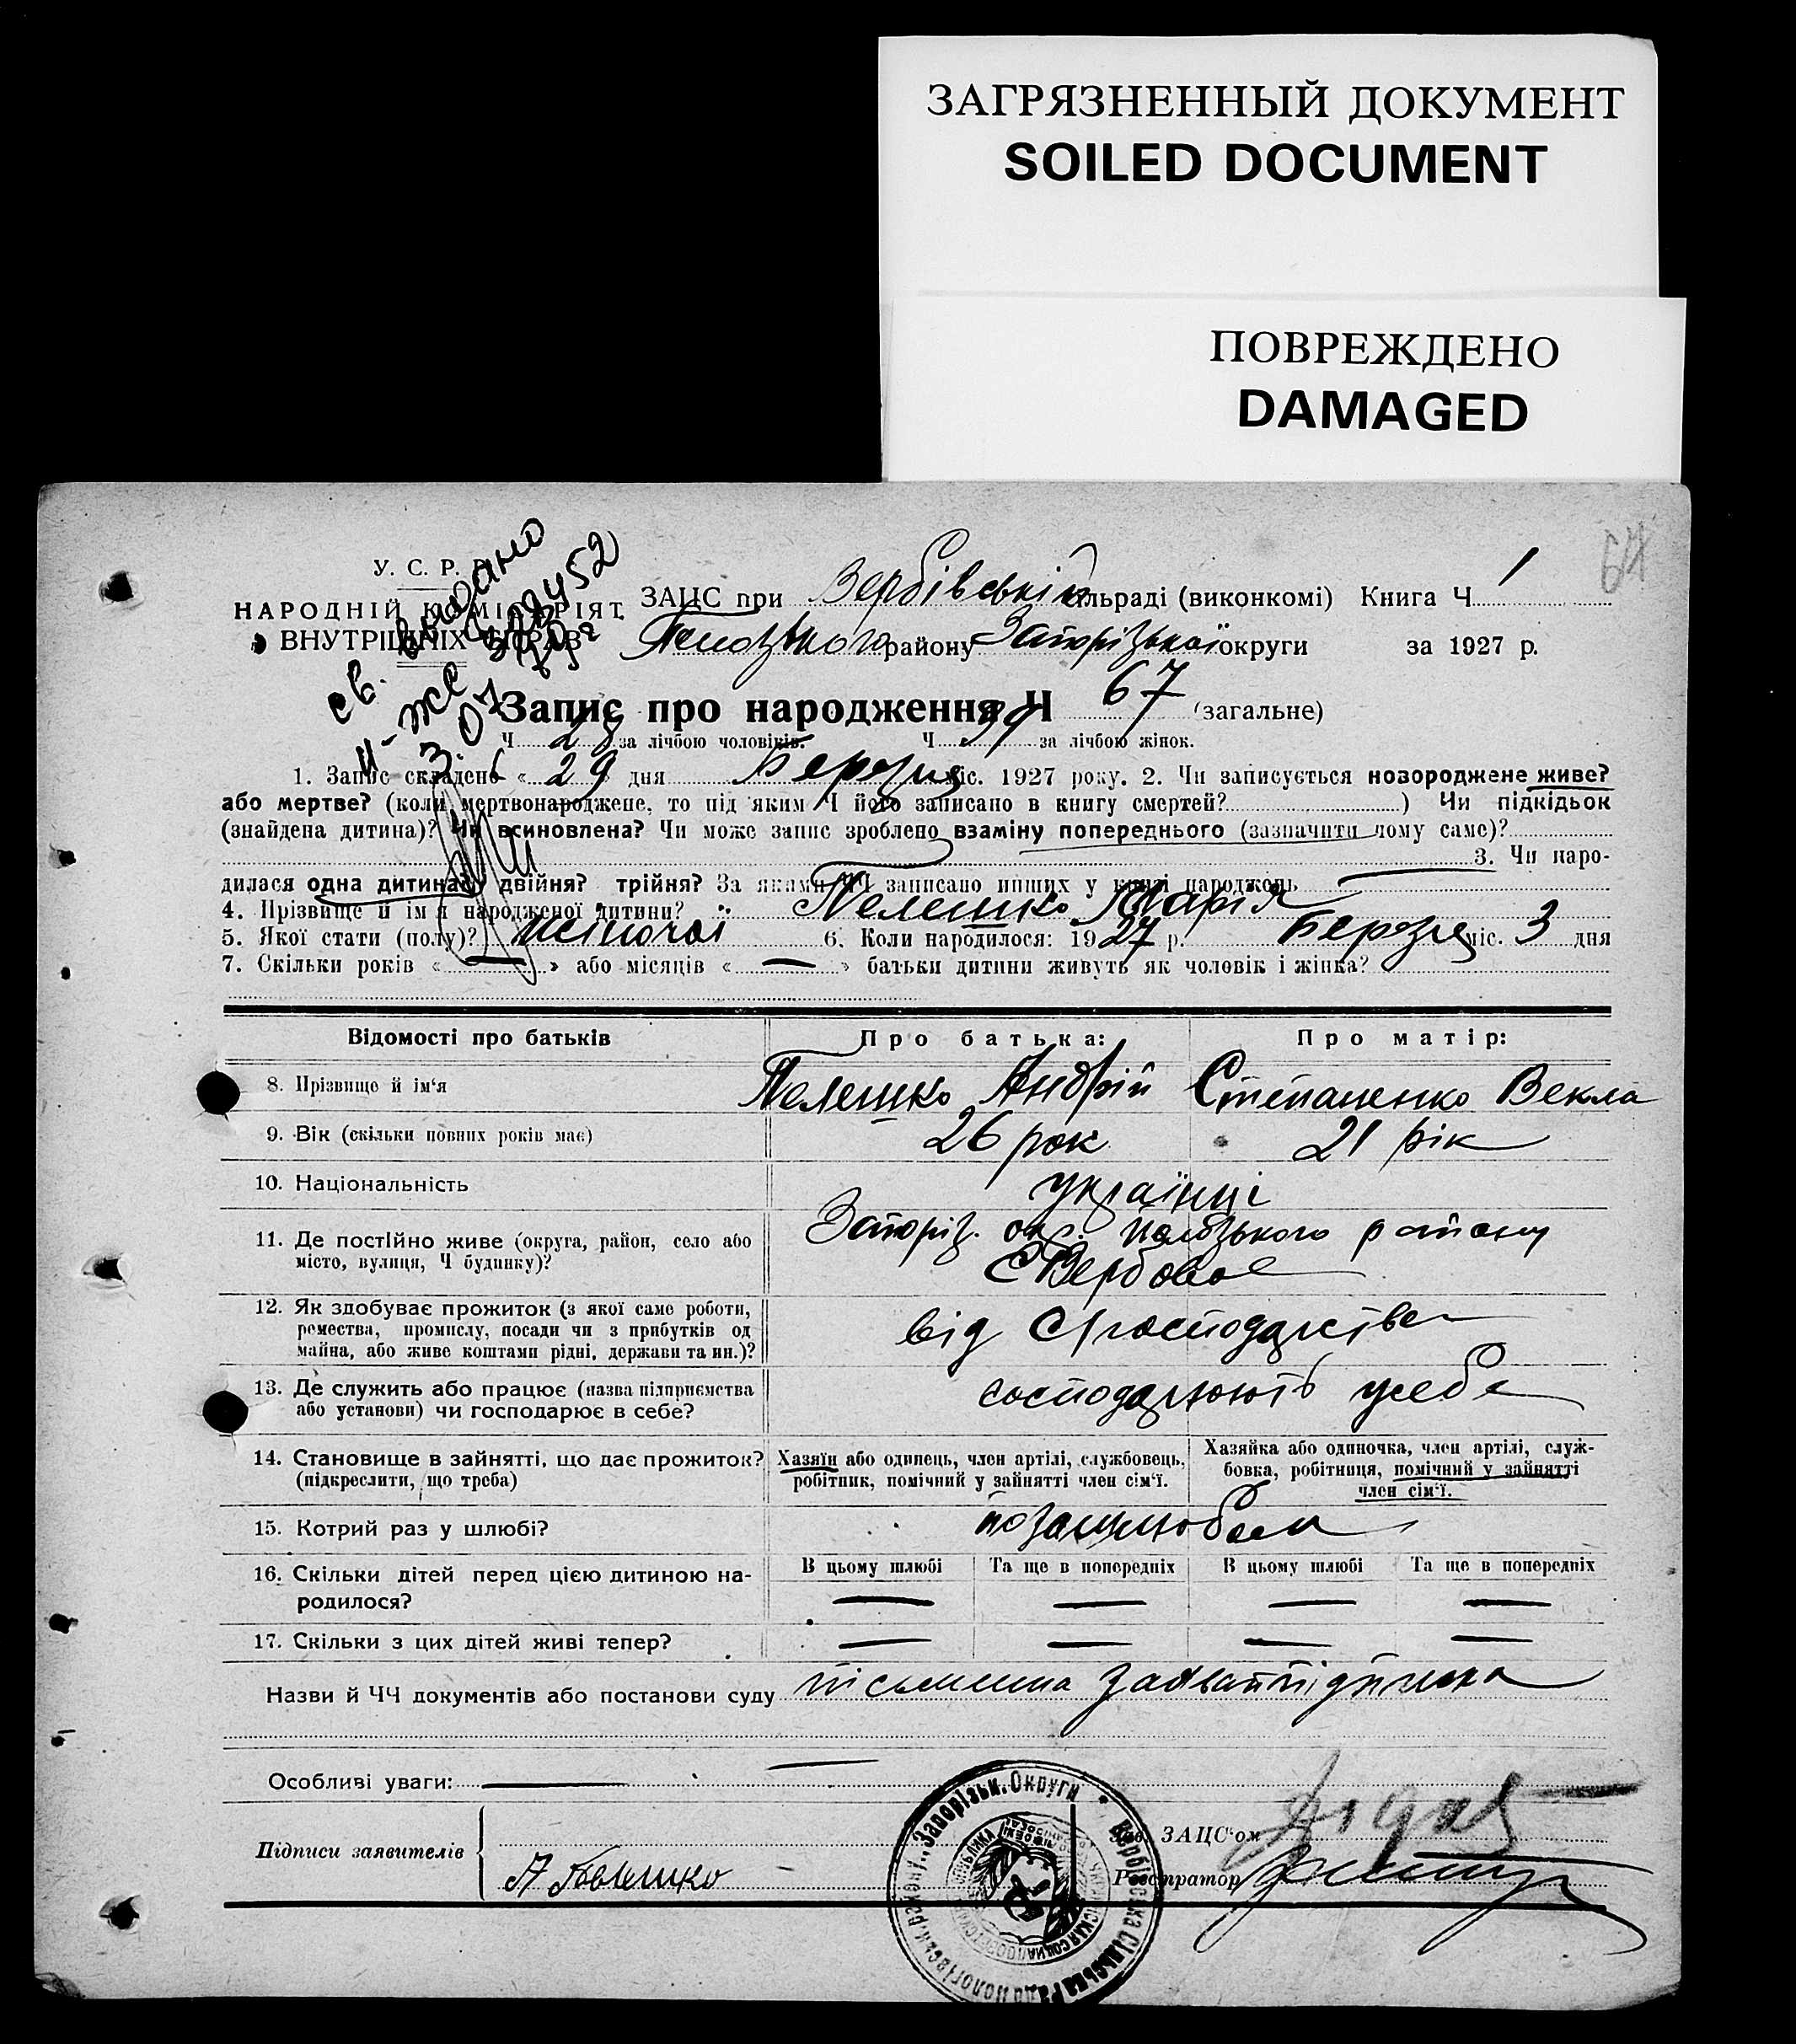 ЗАГРЯЗНЕННЫЙ ДОКУМЕНТ
SOILED DOCUMENT
ПОВРЕЖДЕНО
DAMAGED
67
св. видано
У. С. Р. Р.
НАРОДНІЙ КОМІСАРІЯТ
ВНУТРІШНІХ СПРАВ
ЗАЦС при Вербівській сільраді (виконкомі) Книга Ч. 1
району Запорізької округи за 1927 р.
Запис про народження Ч 67 (загальне)
Ч 28 за лічбою чоловіків. Ч 39 за лічбою жінок.
1. Запис складено « 29 дня Березня міс. 1927 року. 2. Чи записується новороджене живе?
або мертве? (коли мертвонароджене, то під яким Ч його записано в книгу смертей? ) Чи підкідьок
(знайдена дитина)? Чи всиновлена? Чи може запис зроблено взаміну попереднього (зазначити чому саме)?
3. Чи наро-
дилася одна дитина? двійня? трійня? За якими ЧЧ записано инших у книзі народжень
4. Прізвище й ім'я народженої дитини? Пелешко Марія
5. Якої стати (полу)? жіночої 6. Коли народилося: 1927 р. Березня міс. 3 дня
7. Скільки років « — » або місяців « — » батьки дитини живуть як чоловік і жінка?
Відомості про батьків Про батька: Про матір:
8. Прізвище й ім'я Пелешко Андрій Степаненко Векла
9. Вік (скільки повних років має) 26 рок 21 рік
10. Національність українці
11. Де постійно живе (округа, район, село або
місто, вулиця, Ч будинку)?
Запоріз. окр. Пологзького району
с Вербове
12. Як здобуває прожиток (з якої саме роботи,
ремества, промислу, посади чи з прибутків од
майна, або живе коштами рідні, держави та ин.)?
від С/господарства
13. Де служить або працює (назва підприємства
або установи) чи господарює в себе?
господарюють усебе
14. Становище в зайнятті, що дає прожиток?
(підкреслити, що треба)
Хазяїн або одинець, член артілі, службовець,
робітник, помічний у зайнятті член сім'ї.
Хазяйка або одиночка, член артілі, служ-
бовка, робітниця, помічний у зайнятті
член сім'ї.
15. Котрий раз у шлюбі? позашлюбом
16. Скільки дітей перед цією дитиною на-
родилося?
В цьому шлюбі Та ще в попередніх В цьому шлюбі Та ще в попередніх
— — — —
17. Скільки з цих дітей живі тепер? — — — —
Назви й ЧЧ документів або постанови суду письмена
Особливі уваги: —
Підписи заявителів А Пелешко
Зав. ЗАЦС'ом
Реєстратор
Вербівська Сільська Рада Пологівськ. району, Запорізьк. Округи